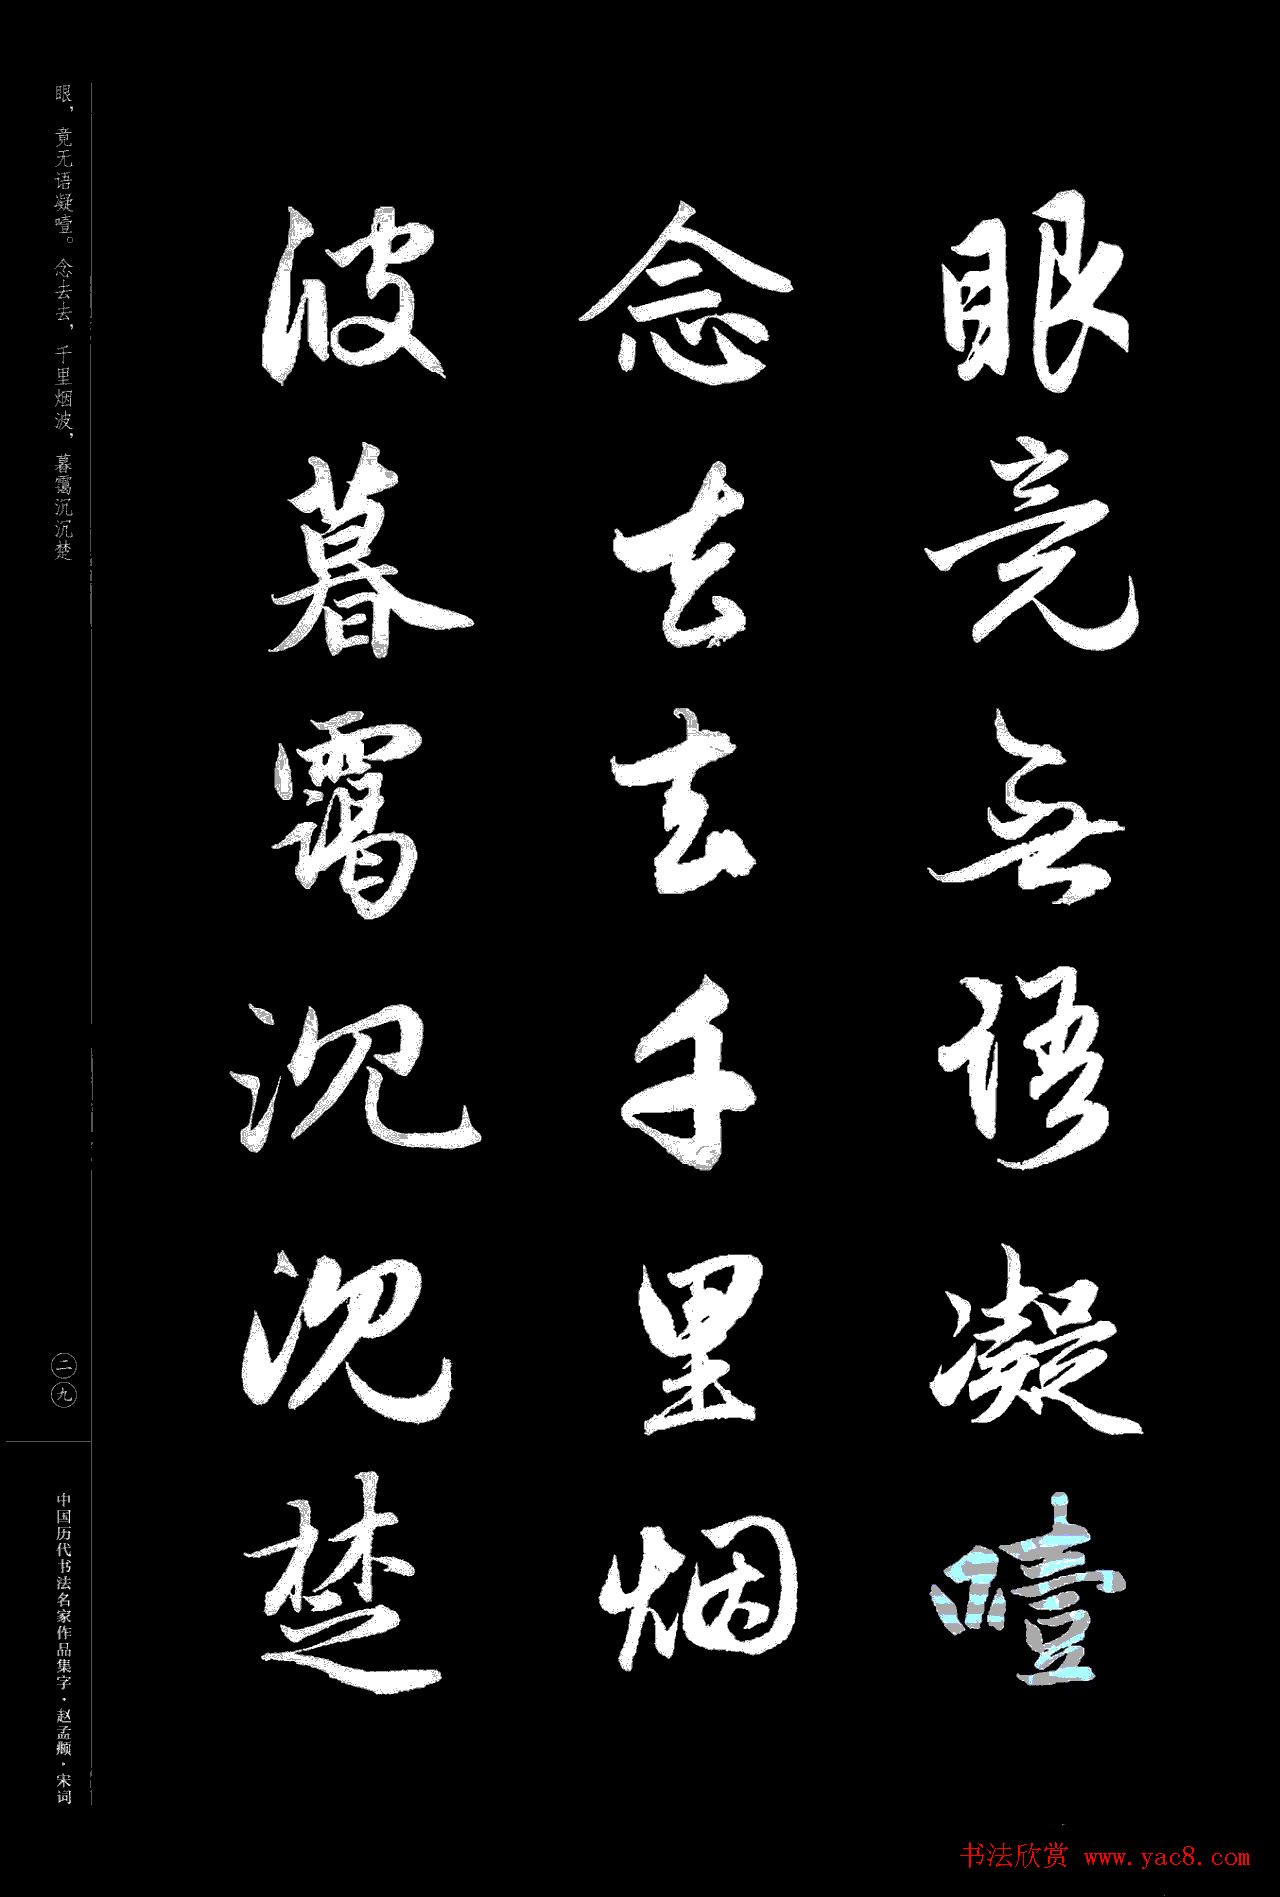 眼竟無語凝噎
念去去千里烟
波暮靄沉沉楚
眼，竟无语凝噎。念去去，千里烟波，暮霭沉沉楚
二九
中国历代书法名家作品集字·赵孟頫·宋词
书法欣赏 www.yac8.com